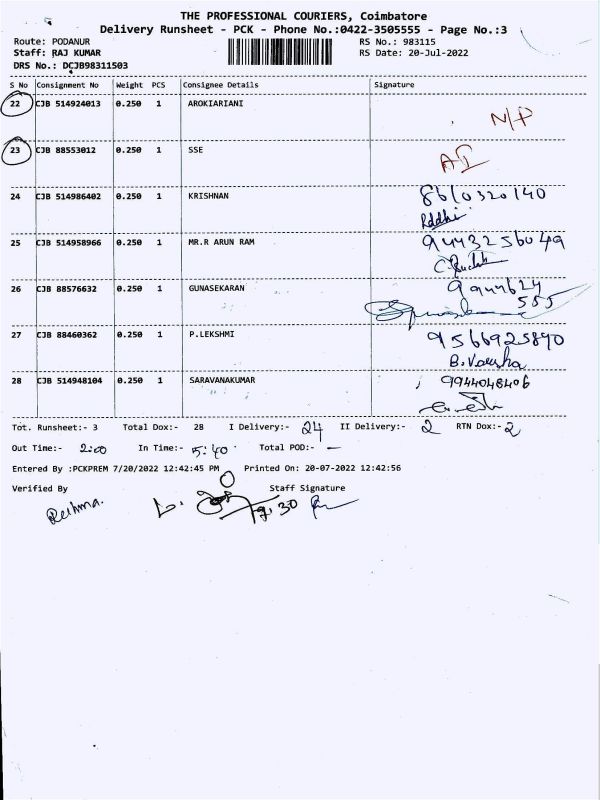 THE PROFESSIONAL COURIERS, Coimbatore
Delivery Runsheet - PCK - Phone No.:0422-3505555 - Page No.:3
Route: PODANUR
RS No.: 983115
Staff: RAJ KUMAR
RS Date: 20-Jul-2022
DRS No.: DCJB98311503
S No Consignment No Weight PCS Consignee Details Signature
22 CJB 514924013 0.250 1 AROKIARIANI
N/P
23 CJB 88553012 0.250 1 SSE
24 CJB 514986402 0.250 1 KRISHNAN 8610320140
25 CJB 514958966 0.250 1 MR.R ARUN RAM 9443256049
26 CJB 88576632 0.250 1 GUNASEKARAN 9944624
555
27 CJB 88460362 0.250 1 P.LEKSHMI 9566925890
28 CJB 514948104 0.250 1 SARAVANAKUMAR 9944048406
Tot. Runsheet:- 3 Total Dox:- 28 I Delivery:- 24 II Delivery:- 2 RTN Dox:- 2
Out Time:- 2:00 In Time:- 5:40 Total POD:- -
Entered By :PCKPREM 7/20/2022 12:42:45 PM Printed On: 20-07-2022 12:42:56
Verified By Staff Signature
Reshma.